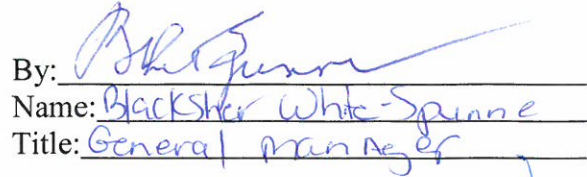 By:
Name: Blacksher White-Spunne
Title: General Manager